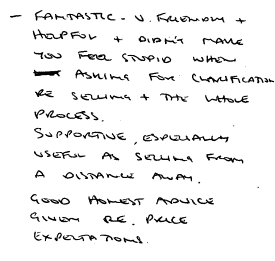 - FANTASTIC - V. FRIENDLY +
HELPFUL + DIDN'T MAKE
YOU FEEL STUPID WHEN
ASKING FOR CLARIFICATION
RE SELLING + THE WHOLE
PROCESS.
SUPPORTIVE, ESPECIALLY
USEFUL AS SELLING FROM
A DISTANCE AWAY.
GOOD HONEST ADVICE
GIVEN RE. PRICE
EXPECTATIONS.